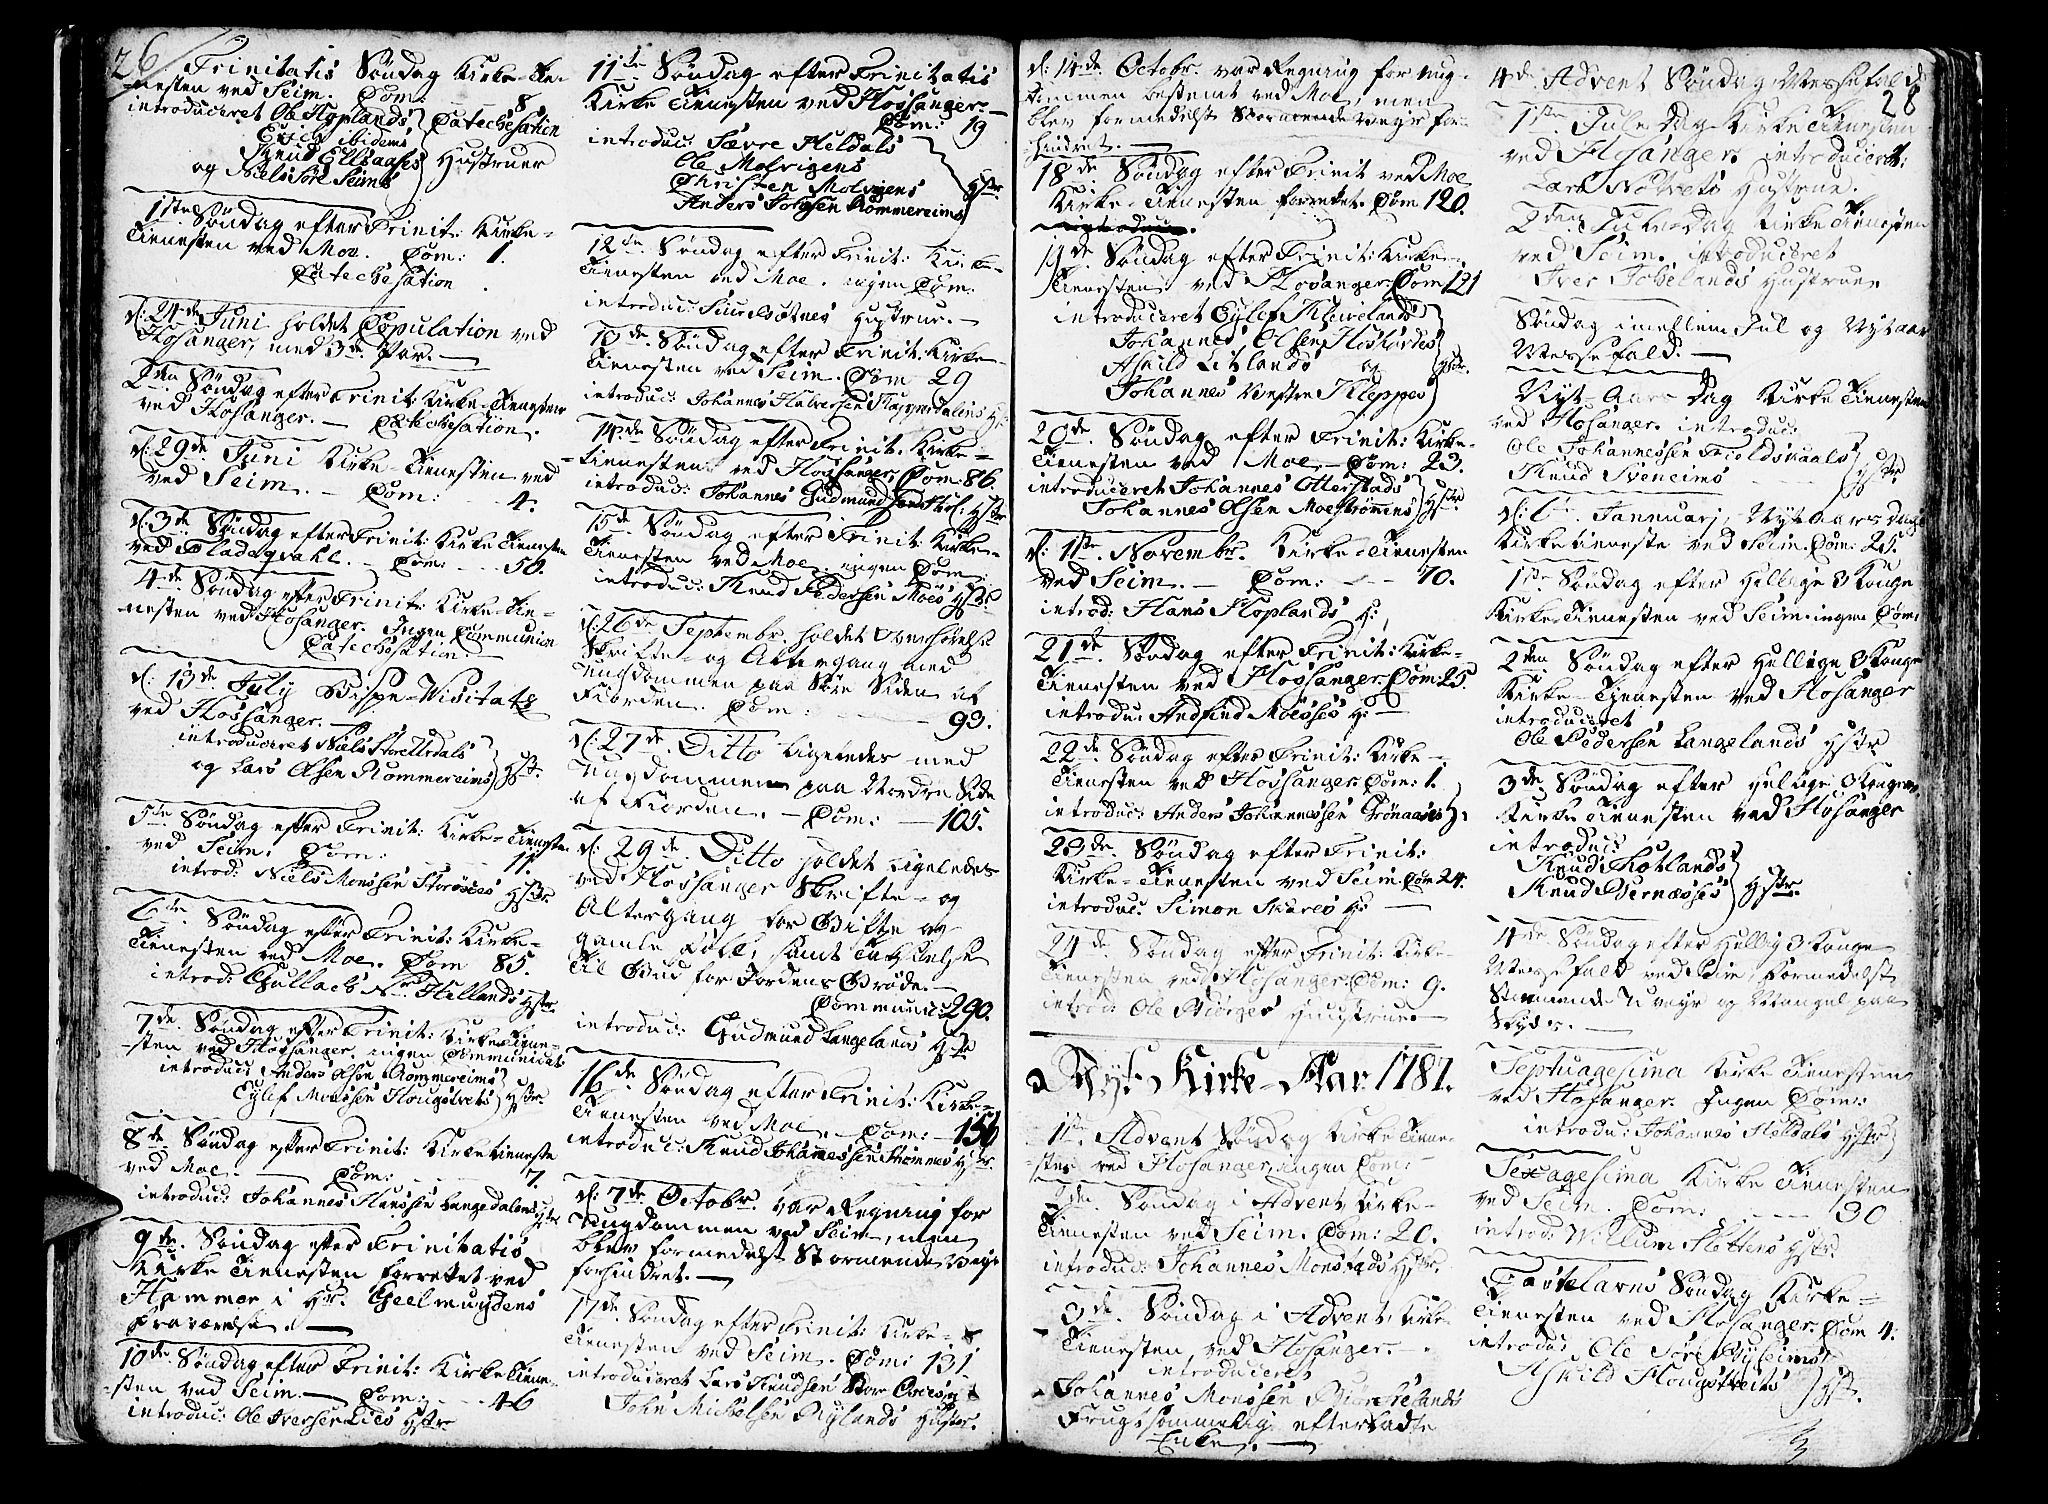 26
Trinitatis Søndag Kirke-Tie-
nesten ved Seim. Com: 8.
introduceret Ole Hoplands Catechesation
Erich ibidem
Knud Eltsaases Hustruer
og Niels Søre Seims
1ste Søndag efter Trinit: Kirke-
Tienesten ved Moe. Com: 1.
Catechesation
d: 24de Juni holdet Copulation ved
Hosanger, med 3de Par.
2den Søndag efter Trinit: Kirke-Tienesten
ved Hosanger. — Catechesation.
d: 29de Juni Kirke-Tienesten ved
ved Seim. — Com: 4.
d: 3de Søndag efter Trinit: Kirke Tienesten
ved — Com: 50.
4de Søndag efter Trinit: Kirke-Tie-
nesten ved Hosanger. Ingen Communion
Catechesation.
d: 13de July Bispe-Visitats
ved Hossanger.
introduceret Niels
og Lars Olsen Rommereims Hstr.
5te Søndag efter Trinit: Kirke-Tieneste
ved Seim. Com: 11.
introd: Niels Monsen Hstr.
6te Søndag efter Trinit: Kirke-
Tienesten ved Moe. Com 85.
introd: Gullach Hellands Hstr.
7de Søndag efter Trinit: Kirke-Tiene-
-sten ved Hossanger. ingen Communicat:
introduc: Anders Olsen Rommereims
Eylef Monssen Hougstvets Hstr.
8de Søndag efter Trinit: Kirketieneste
ved Moe. Com: 7.
introduc: Johannes Hanssen Langedalens Hstr
9de Søndag efter Trinitatis
Kirke Tienesten forrettet ved
Hammer i Hr. Geelmuydens
Fraværelse.
10de Søndag efter Trinit: Kirke Tiene-
-sten ved Seim. — Com: 46
introduc: Ole Iversen Hstr
11te Søndag efter Trinitatis
Kirke Tienesten ved Hossanger.
Com: 19
introduc: Sævre Heldals
Ole Molvigens
Christen Molvigens Hstr.
Anders Johnsen Rommereims
12te Søndag efter Trinit: Kirke-
Tienesten ved Moe. ingen Com:
introduc: Hustrue.
13de Søndag efter Trinit: Kirke-
Tienesten ved Seim. Com 29
introduc: Johannes Halversen
14de Søndag efter Trinit. Kirke-
tienesten ved Hossanger Com: 86.
introduc: Johannes Gudmundsen Hstr
15de Søndag efter Trinit Kirke-
Tienesten ved Moe. ingen Com:
introduc: Knud Pedersen Moes Hstr:
d: 26de Septembr. holdet Overhørelse
Skrifte- og Altergang med
Ungdommen paa Søre Siden af
Fiorden. Com: 93.
d: 27de Ditto ligeledes med
Ungdommen paa Nordre Side
af Fiorden. — Com: 105.
d: 29de Ditto holdet ligeledes
ved Hossanger Skrifte- og
Altergang for Gifte og
gamle Folk, samt Taksigelse
Til Gud for Jordens Grøde.
Communic: 290.
introduc: Gudmund Langelands Hstr
16de Søndag efter Trinit: Kirke-
Tienesten ved Moe. Com: 156
introduc: Knud Johannessen Hstr.
d: 7de Octobr. var Regning for
Ungdommen ved Seim, men
blev formedelst Stormende Veyr
forhindret.
17de Søndag efter Trinit: Kirke-
Tienesten ved Seim. Com: 131
introduceret Lars Knudsen Store
John Mickelsen Nylands Hustr.
d: 14de Octobr. var Regning for Ung-
dommen bestemt ved Moe, men
blev formedelst Stormende Veyr for-
hindret.
18de Søndag efter Trinit ved Moe
Kirke-Tienesten forrettet. Com 120.
19de Søndag efter Trinit: Kirke-
Tienesten ved Hosanger. Com 121
introduceret Eylef Kleivelands
Johannes Olsen
Askild Litlands og Hstr.
Johannes Vestre Kleppes
20de Søndag efter Trinit: Kirke-
Tienesten ved Moe. — Com: 23.
introduceret Johannes Otterstads
Johannes Olsen Moestrømens Hstr.
d: 1ste Novembr. Kirke-Tienesten
ved Seim. — Com: 70.
introd: Hans Hoplands H:
21de Søndag efter Trinit: Kirke-
Tienesten ved Hossanger. Com: 25.
introdu: Andfind Moeses H:
22de Søndag efter Trinit: Kirke-
Tienesten ved Hossanger. Com: 1.
introduc: Anders Johannessen Grønaases H:
23de Søndag efter Trinit:
Kirke-Tienesten ved Seim Com 24.
introduc: Simon Skares H:
24de Søndag efter Trinit: Kirke-
Tienesten ved Hosanger. Com: 9.
introd: Ole Hustrue.
Nyt Kirke-Aar 1781.
1ste Advent Søndag Kirke Tiene-
-sten ved Hosanger, ingen Com:
2den Søndag i Advent, Kirke-
Tienesten ved Seim. Com: 20.
introduc: Johannes Monstads Hstr.
3de Søndag i Advent, Kirke-
Tienesten, ved Hosanger.
introduceret
Johannes Monssen
efterladte
Enke.
28
4de Advent Søndag Messefald
1ste Jule-Dag Kirke Tienesten
ved Hosanger. introduceret:
Lars Hustrue.
2den Jule-Dag Kirke Tienesten
ved Seim. introduceret
Iver Hustrue
Søndag imellem Jul og Nytaar
Messefald.
Nyt-Aars Dag Kirke Tienesten
ved Hosanger. introduc:
Ole Johannessen
Knud Sveneims Hstr
d: 6te Jannuarj, Nyt Aars Dag
Kirketieneste ved Seim. Com: 25.
1ste Søndag efter Hellige 3 Konge
Kirke-Tienesten ved Seim. ingen Com:
2den Søndag efter Hellige 3 Konge
Kirke-Tienesten ved Hosanger
introduceret
Ole Pedersen Langelands Hstr
3de Søndag efter Hellige 3 Konger
Kirke Tienesten ved Hosanger
introduc:
Knud
Knud Hstr.
4de Søndag efter Hellig 3 Konge
Messefald ved Seim, formedelst
Stormende Uveyr og Mangel paa
Skyds.
Septuagesima Kirke Tienesten
ved Hosanger. Ingen Com:
introdu: Johannes Heldals Hstr
Sexagesima Kirke Tienesten
ved Seim. Com: 30
introd: Willum Hstr.
Fastelavns Søndag Kirke-
Tienesten ved Hosanger. Com 4.
introdu: Ole Søre
Askild Hougstveits Hstr.